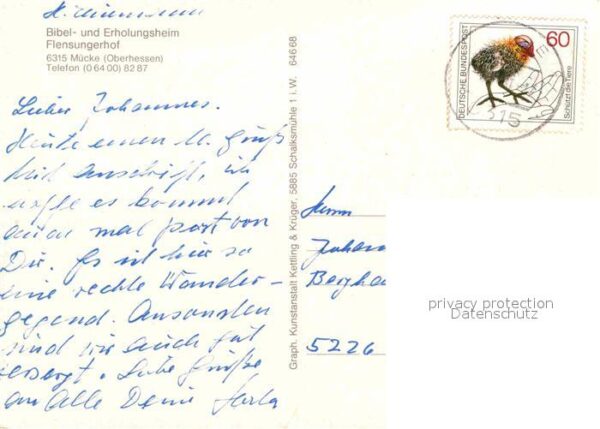 Bibel- und Erholungsheim
Flensungerhof
6315 Mücke (Oberhessen)
Telefon (0 64 00) 82 87
Lieber Johannes.
Heute einen kl. Gruß
mit Anschrift, ich
hoffe es kommt
auch mal post von
Dir. Es ist hier so
eine rechte Wander-
gegend. Ansonsten
sind wir auch gut
versorgt. Liebe Grüße
an alle Deine
Graph. Kunstanstalt Kettling & Krüger, 5885 Schalksmühle 1 i.W. 64668
DEUTSCHE BUNDESPOST
60
Schützt die Tiere
Herrn
Johann
5226
privacy protection
Datenschutz